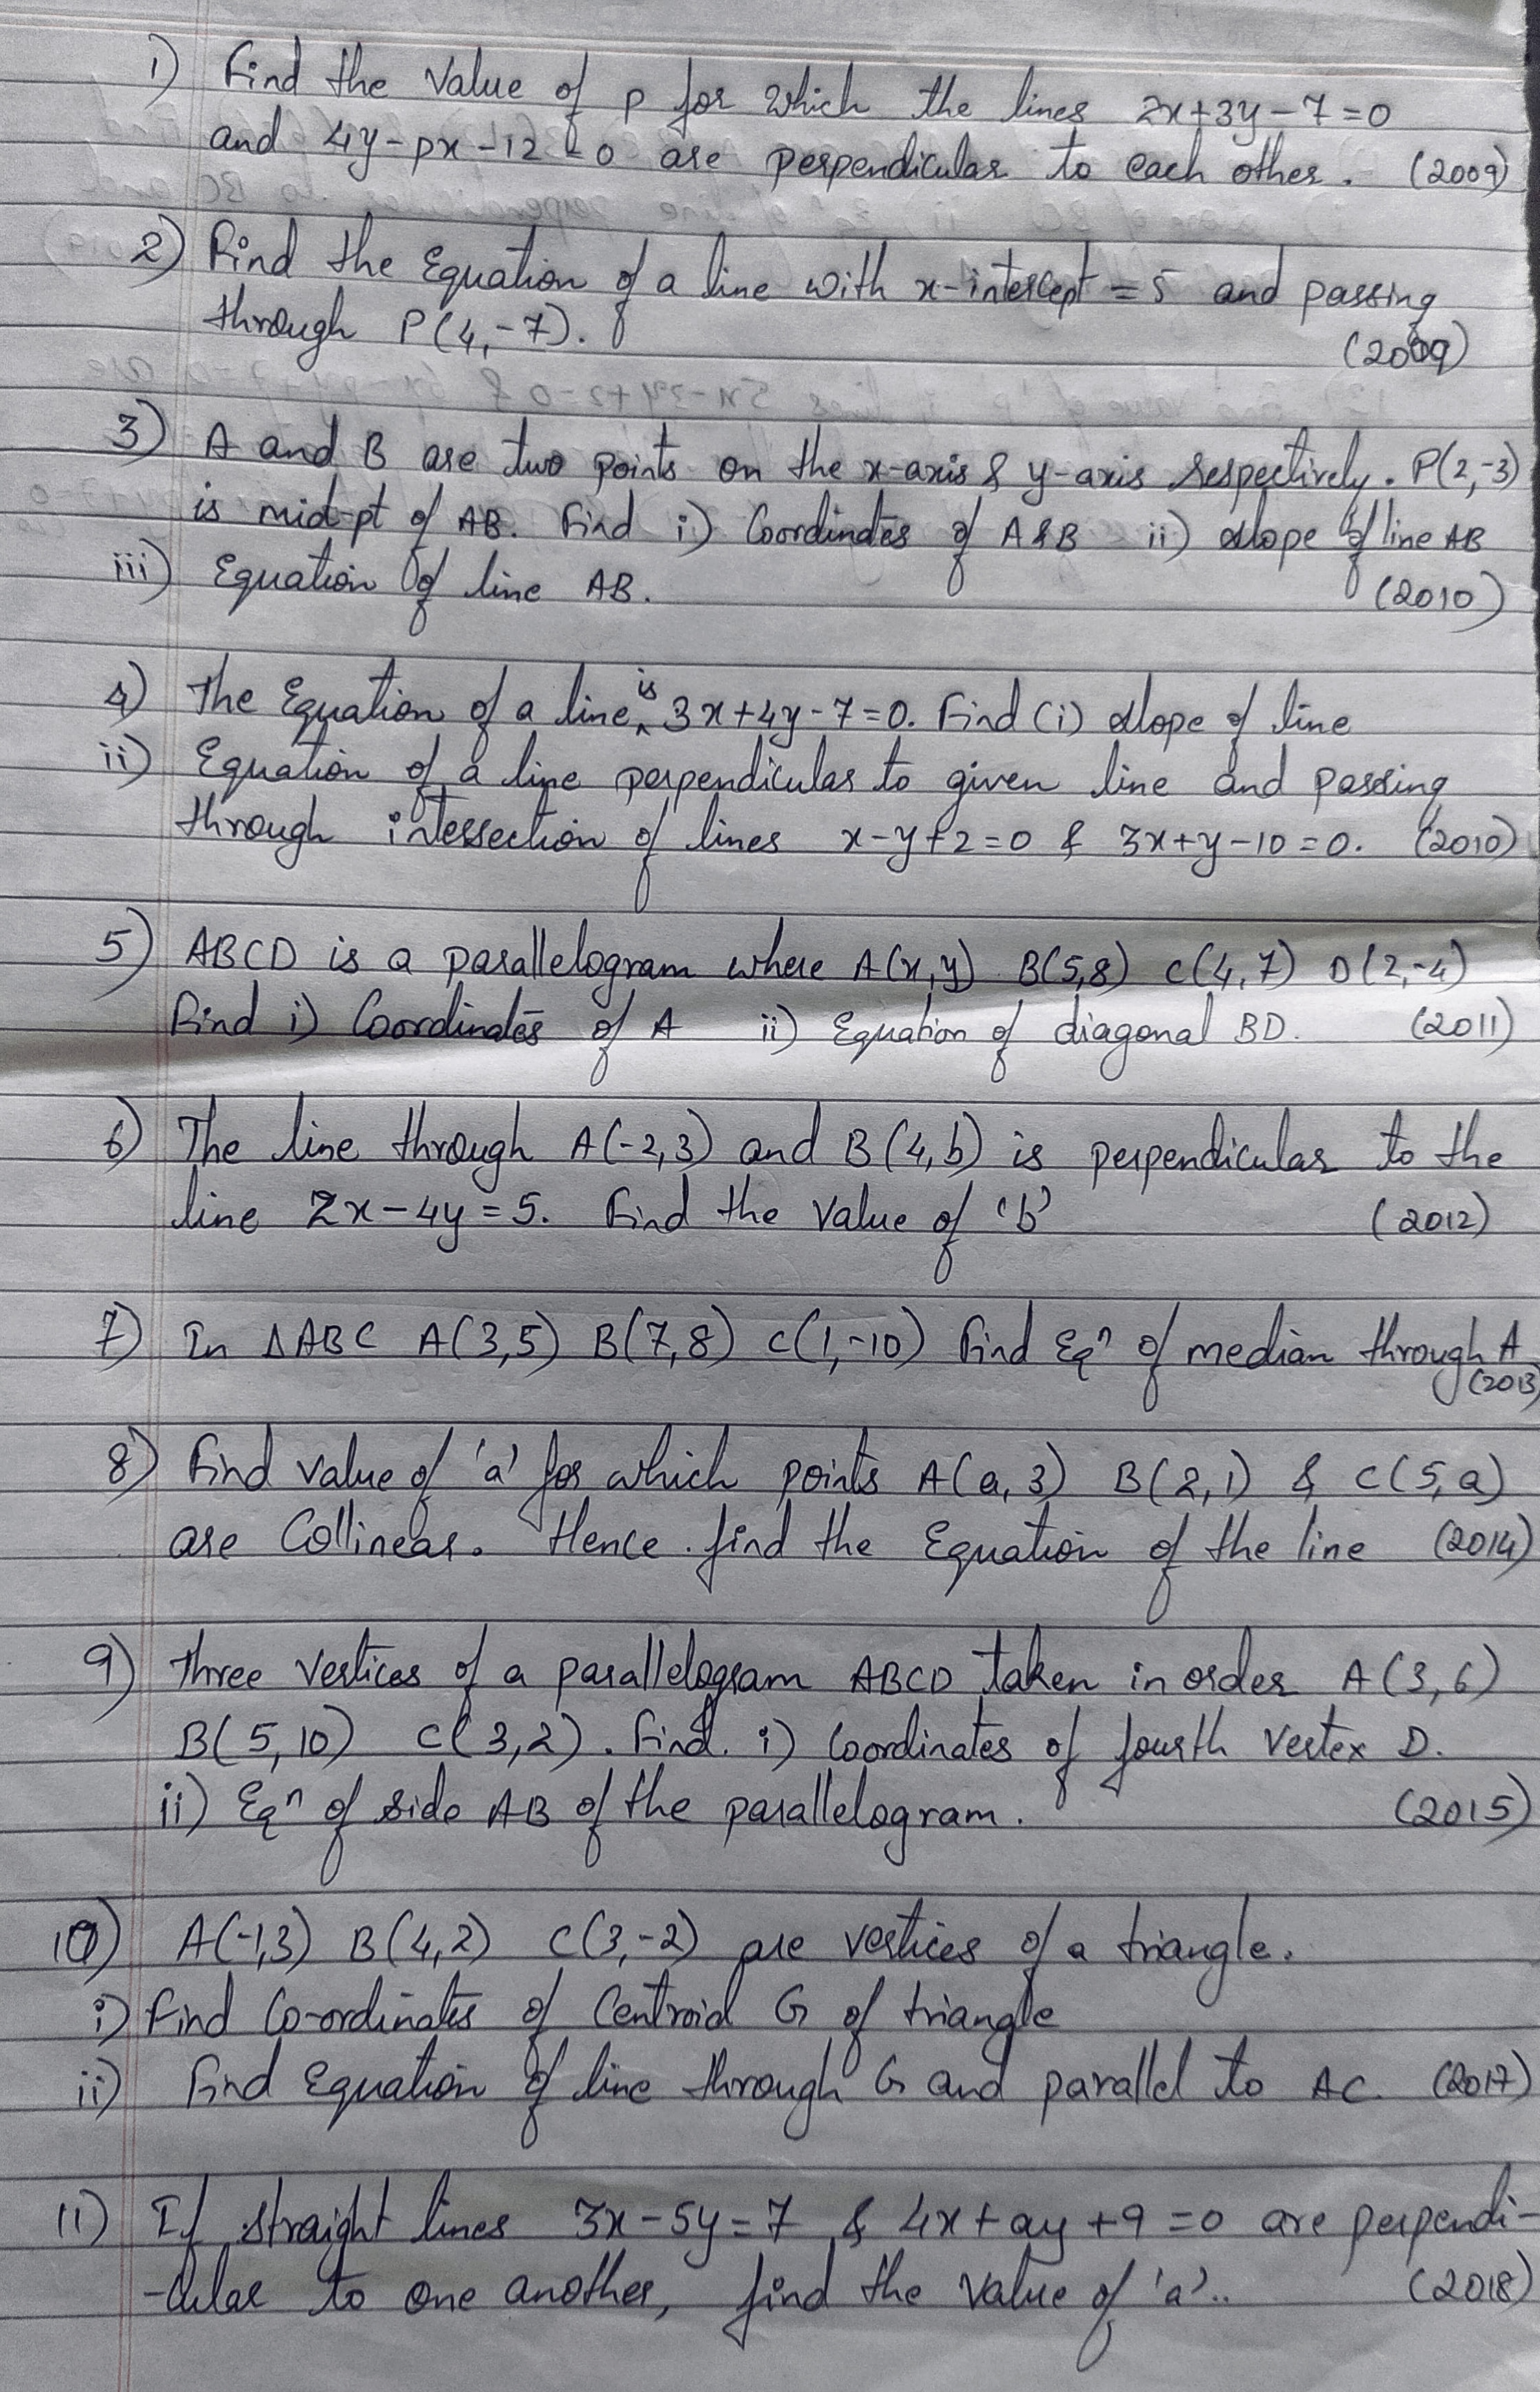 1) Find the value of p for which the lines 2x+3y-7=0
and 4y-px-12=0 are perpendicular to each other. (2009)
2) Find the Equation of a line with x-intercept = 5 and passing
through P(4,-7). (2009)
3) A and B are two points on the x-axis & y-axis respectively. P(2,-3)
is mid-pt of AB. Find i) Coordinates of A&B ii) slope of line AB
iii) Equation of line AB. (2010)
4) The Equation of a line is 3x+4y-7=0. Find (i) slope of line
ii) Equation of a line perpendicular to given line and passing
through intersection of lines x-y+2=0 & 3x+y-10=0. (2010)
5) ABCD is a parallelogram where A(x,y) B(5,8) C(4,7) D(2,-4)
Find i) Coordinates of A ii) Equation of diagonal BD. (2011)
6) The line through A(-2,3) and B(4,b) is perpendicular to the
line 2x-4y=5. Find the value of 'b' (2012)
7) In ΔABC A(3,5) B(7,8) C(1,-10) Find Eqⁿ of median through A
(2013)
8) Find value of 'a' for which points A(a,3) B(2,1) & C(5,a)
are Collinear. Hence find the Equation of the line (2014)
9) Three vertices of a parallelogram ABCD taken in order A(3,6)
B(5,10) C(3,2). Find. i) Coordinates of fourth vertex D.
ii) Eqⁿ of side AB of the parallelogram. (2015)
10) A(-1,3) B(4,2) C(3,-2) are vertices of a triangle.
i) Find Co-ordinates of Centroid G of triangle
ii) Find Equation of line through G and parallel to AC. (2017)
11) If straight lines 3x-5y=7 & 4x+ay+9=0 are perpendi-
-cular to one another, find the value of 'a'.. (2018)